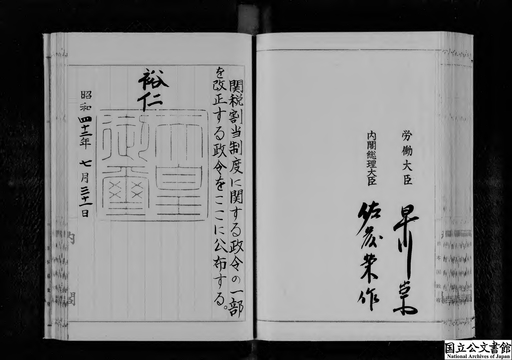 労働大臣 早川崇
内閣総理大臣 佐藤榮作
関税割当制度に関する政令の一部
を改正する政令をここに公布する。
裕仁
天皇
御璽
昭和四十二年 七月三十一日
国立公文書館
National Archives of Japan